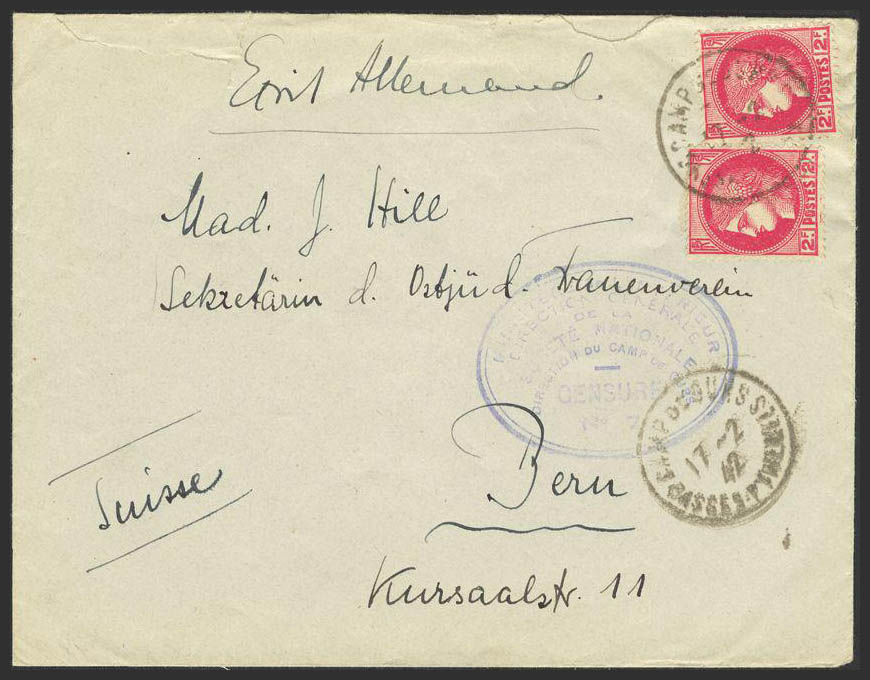 Ecrit Allemand.
RF POSTES 2F
2F
RF POSTES 2F
2F
CAMP
Mad. J. Hill
Sekretärin d. Ostjüd. Frauenverein
DIRECTION GÉNÉRALE
DE LA
NATIONALE
DIRECTION DU CAMP DE GURS
CENSURE
No 7
CAMP DE GURS
17-2
42
Bern
Suisse
Kursaalstr. 11